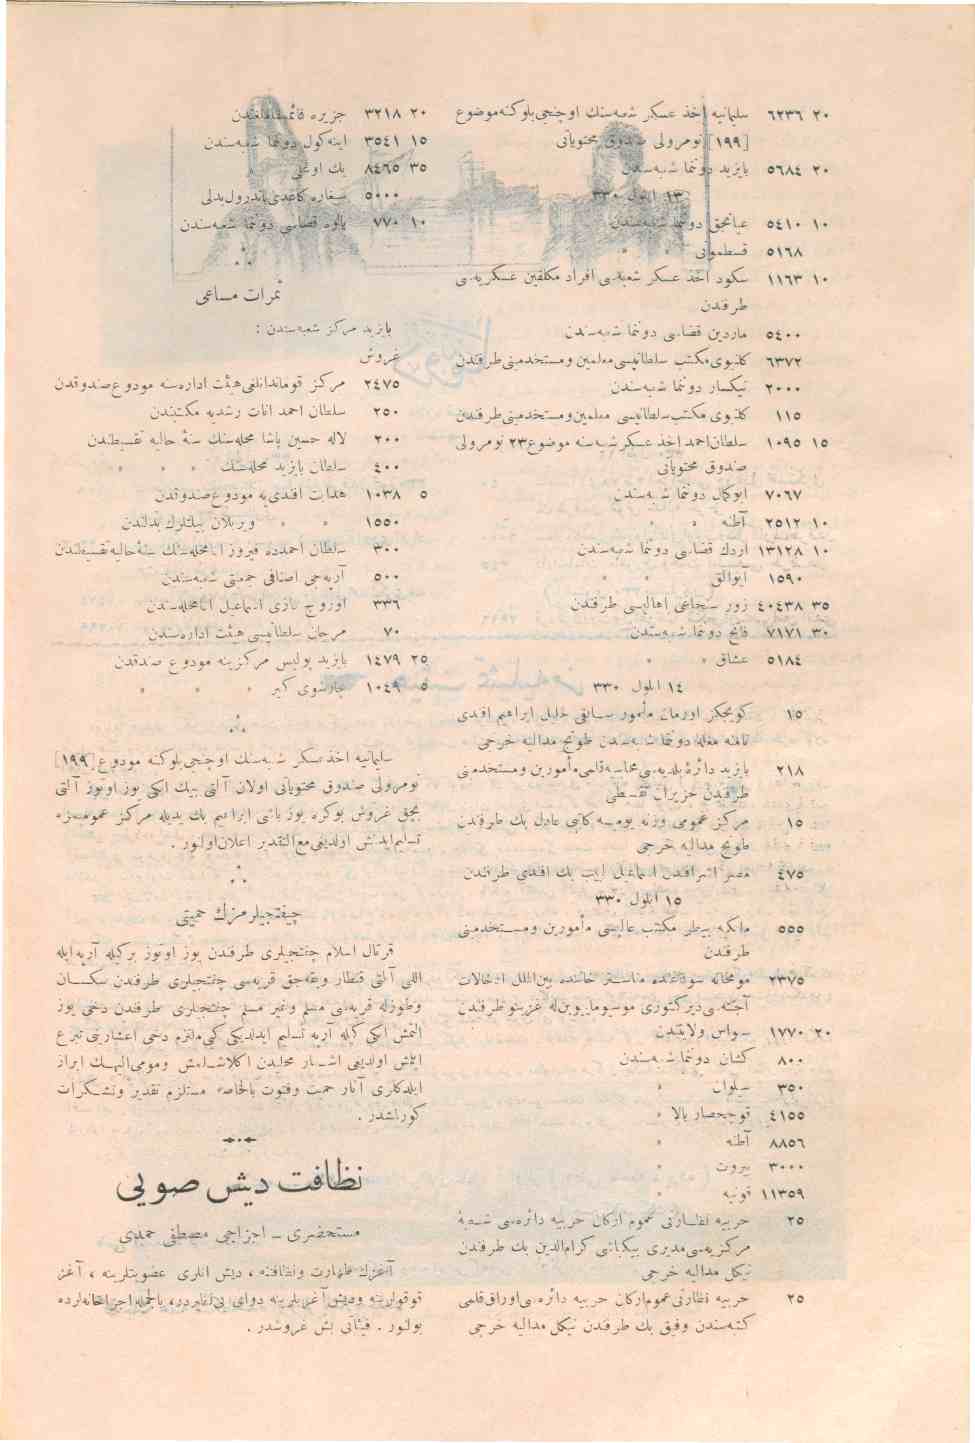 ٢٠ ٦٢٣٦ سليمانيه اخذ عسكر شعبه‌سنك اوچنجى بلوكنه موضوع
[١٩٩] نومرولى صندوق محتوياتى
٢٠ ٥٦٨٤ بايزيد دوننما شعبه‌سندن
١٣ ايلول ٣٣٠
١٠ ٥٤١٠ عيانجق دوننما شعبه‌سندن
٥١٦٨ قسطمونى » »
١٠ ١١٦٣ سكود اخذ عسكر شعبه‌سى افراد مكلفين عسكريه‌سى
طرفندن
٥٤٠٠ ماردين قضاسى دوننما شعبه‌سندن
٦٣٧٢ كليبولى مكتب سلطانيسى معلمين ومستخدمينى طرفندن
٢٠٠٠ نيكسار دوننما شعبه‌سندن
١١٥ كليبولى مكتب سلطانيسى معلمين ومستخدمينى طرفندن
١٥ ١٠٩٥ سلطان احمد اخذ عسكر شعبه‌سنه موضوع ٢٣ نومرولى
صندوق محتوياتى
٧٠٦٧ ابوكمال دوننما شعبه‌سندن
١٠ ٢٥١٢ آطنه » »
١٠ ١٣١٢٨ اردك قضاسى دوننما شعبه‌سندن
١٥٩٠ آيوالق » »
٣٥ ٤٠٤٣٨ زور سنجاغى اهاليسى طرفندن
٣٠ ٧١٧١ فاتح دوننما شعبه‌سندن
٥١٨٤ عشاق » »
١٤ ايلول ٣٣٠
١٥ كويجكز اورمان مأمور سابقى خليل ابراهيم افندى
نامنه مغله دوننما شعبه‌سندن طونج مداليه خرجى
٢١٨ بايزيد دائرهٔ بلديه‌سى محاسبه قلمى مأمورين ومستخدمينى
طرفندن حزيران تقسيطى
١٥ مركز عمومى وزنه يوميه كاتبى عادل بك طرفندن
طونج مداليه خرجى
٤٧٥ مصر اشرافندن اسماعيل لبيب بك افندى طرفندن
١٥ ايلول ٣٣٠
٥٥٥ ملكيه بيطر مكتب عاليسى مأمورين ومستخدمينى
طرفندن
٢٣٧٥ مومخانه سوقاغنده مناستر خاننده بين الملل ادخالات
آجنته‌سى ديركتورى طرفندن
٢٠ ١٧٧٠ سواس ولايتندن
٨٠٠ كشان دوننما شعبه‌سندن
٣٥٠ سلوان »
٤١٥٥ قوچحصار بالا »
٨٨٥٦ آطنه »
٣٠٠٠ بيروت »
١١٣٥٩ قونيه »
٢٥ حربيه نظارتى عموم اركان حربيه دائره‌سى شعبهٔ
مركزيه‌سى مديرى بيكباشى كرام الدين بك طرفندن
نيكل مداليه خرجى
٢٥ حربيه نظارتى عموم اركان حربيه دائره‌سى اوراق قلمى
كتبه‌سندن وفيق بك طرفندن نيكل مداليه خرجى
٢٠ ٣٢١٨ جزيره قائممقاملغندن
١٥ ٣٥٤١ اينه‌كول دوننما شعبه‌سندن
٣٥ ٨٤٦٥ بك اوغلى »
٥٠٠٠ سيغاره كاغدى باندرول بدلى
١٠ ٧٧٠ بالوه قضاسى دوننما شعبه‌سندن
ثمرات مساعى
بايزيد مركز شعبه‌سندن :
غروش
٢٤٧٥ مركز قوماندانلغى هيئت اداره‌سنه مودوع صندوقدن
٢٥٠ سلطان احمد اناث رشديه مكتبندن
٢٠٠ لاله حسين پاشا محله‌سنك سنهٔ حاليه تقسيطندن
٤٠٠ سلطان بايزيد محله‌سنك » » »
٥ ١٠٣٨ هدايت افندى‌يه مودوع صندوقدن
١٥٥٠ » » ويريلان بيلتلرك بدلندن
٣٠٠ سلطان احمدده فيروز اغا محله‌سنك سنهٔ حاليه تقسيطندن
٥٠٠ آرپه‌جى اصنافى جمعيتى شعبه‌سندن
٣٣٦ اوروج غازى اسماعيل اغا محله‌سندن
٧٠ مرجان سلطانيسى هيئت اداره‌سندن
٢٥ ١٤٧٩ بايزيد پوليس مركزينه مودوع صندقدن
٥ ١٠٤٩ چارشوى كبير » » »
سليمانيه اخذ عسكر شعبه‌سنك اوچنجى بلوكنه مودوع [١٩٩]
نومرولى صندوق محتوياتى اولان آلتى بيك ايكى يوز اوتوز آلتى
بچق غروش بوكره يوز باشى ابراهيم بك يديله مركز عموميمزه
تسليم ايدلمش اولديغى مع التقدير اعلان اولنور .
چيفتجيلرمزك حميتى
قرتال اسلام چفتجيلرى طرفندن يوز اوتوز بر كيله آرپه ايله
اللى آلتى قنطار وعه‌جق قريه‌سى چفتجيلرى طرفندن سكسان
وطوزله قريه‌سى مسلم وغير مسلم چفتجيلرى طرفندن دخى يوز
التمش ايكى كيله آرپه تسليم ايدلديكى كبى ملتزم دخى اعشارينى تبرع
ايتمش اولديغى اشعار محليدن اكلاشلمش ومومى اليهمك ابراز
ايلدكلرى آثار حميت وفتوت بالخاصه مستلزم تقدير وتشكرات
كورلمشدر .
نظافت ديش صويى
مستحضرى ــ اجزاجى مصطفى حمدى
آغزك طهارت ونظافتنه ، ديش اتلرى عضويتلرينه ، آغز
قوقولرينه وديش آغريلرينه دواى بى‌نظيردر، بالجمله اجزاخانه‌لرده
بولنور . فيئاتى بش غروشدر .